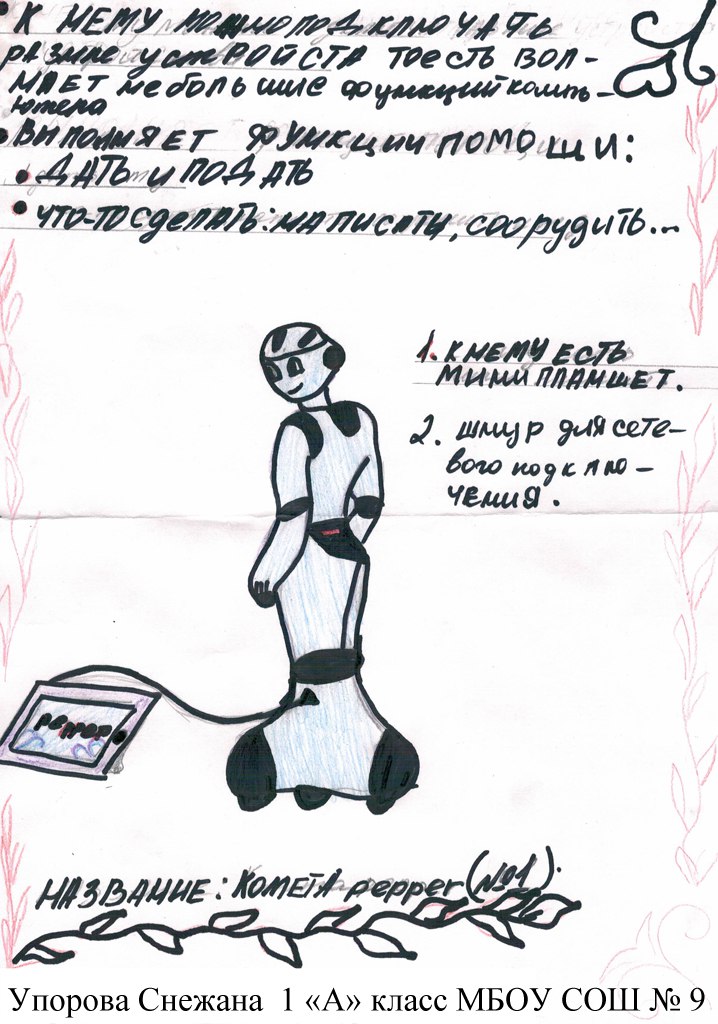 • К НЕМУ МОЖНО ПОДКЛЮЧАТЬ
разные устРОЙСТА ТОЕСТЬ ВОЛ-
НАЕТ небольшие функций компь-
ютера
• ВЫПОЛНЯЕТ ФУНКЦИИ ПОМОЩИ:
• ДАТЬ И ПОДАТЬ
• ЧТО-ТО сделать: написать, соорудить...
1. К НЕМУ ЕСТЬ
МИНИ ПЛАНШЕТ.
2. шнур для сете-
вого подклю-
чения.
pepper
НАЗВАНИЕ: КОМЕТА pepper (№1).
Упорова Снежана 1 «А» класс МБОУ СОШ № 9